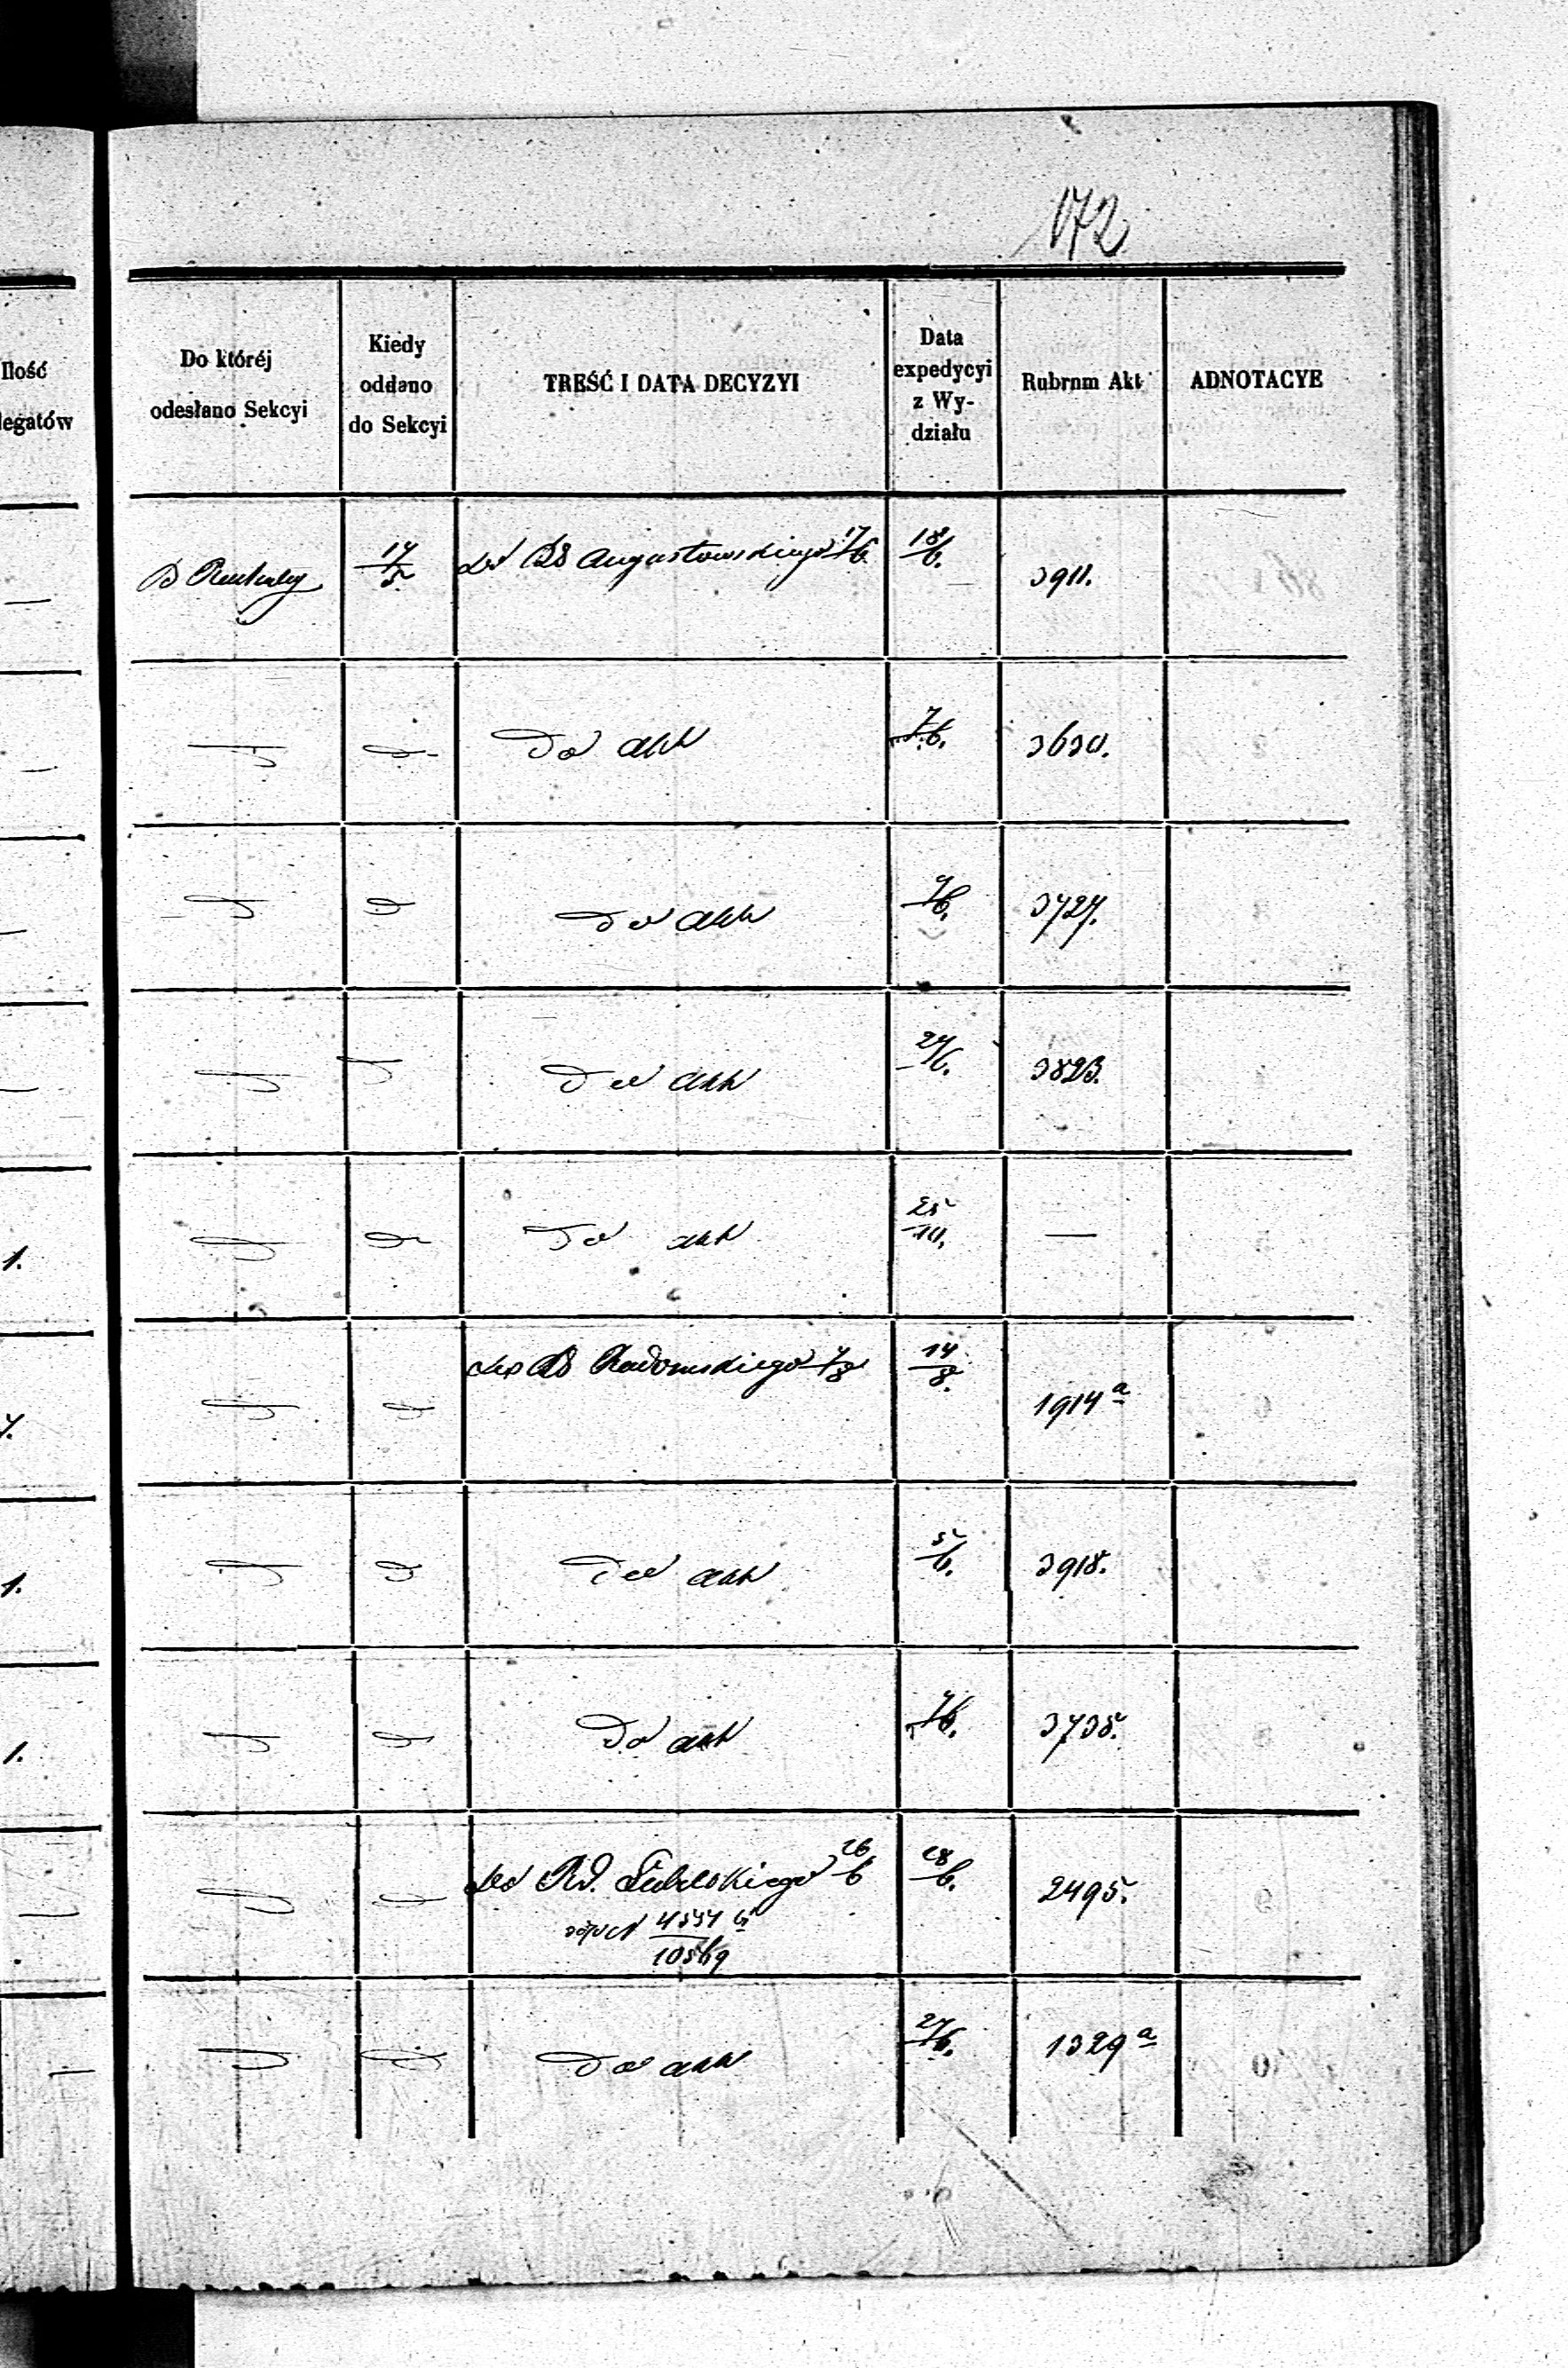 172
Ilość
legatów
Do któréj
odesłano Sekcyi
Kiedy
oddano
do Sekcyi
TREŚĆ I DATA DECYZYI
Data
expedycyi
z Wy-
działu
Rubrum Akt
ADNOTACYE
B 17/5 do Rd Augustowskiego 17/6 18/6. 3911.
Do akt 7/6. 3630.
Do akt 7/6. 3727.
Do akt 27/6. 3823.
1. Do akt 25/10. —
7. do Rd Radomskiego 7/8 14/8. 1914 a
1. Do akt 5/6. 3918.
1. Do akt 7/6. 3738.
— do Rd. Lubelskiego 26/6 28/6. 2495.
10569
— Do akt 27/6. 1329 a